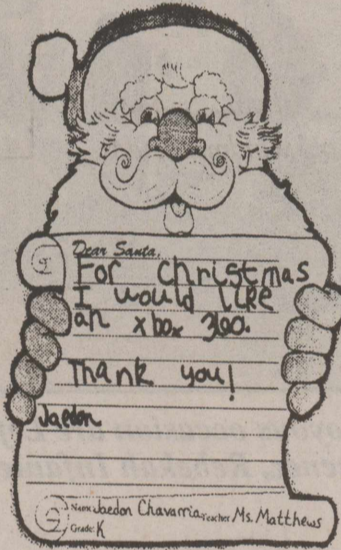 Dear Santa,
For Christmas
I would like
an xbox 360.
Thank you!
Jaedon
Name: Jaedon Chavarria Teacher Ms. Matthews
Grade: K